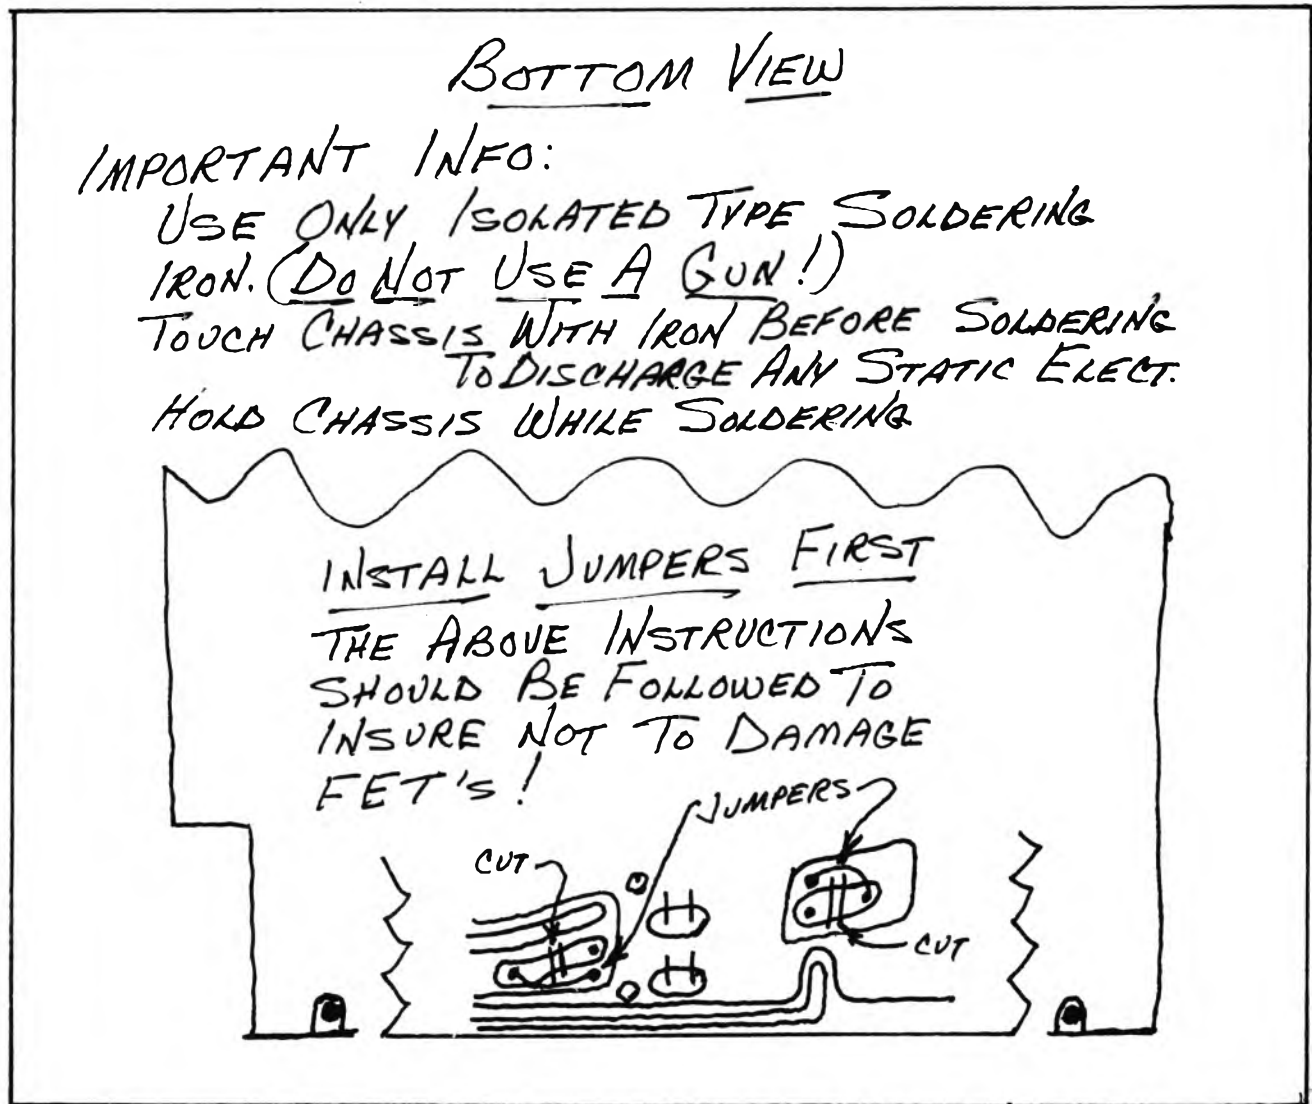 BOTTOM VIEW
IMPORTANT INFO:
USE ONLY ISOLATED TYPE SOLDERING
IRON. (DO NOT USE A GUN!)
TOUCH CHASSIS WITH IRON BEFORE SOLDERING
TO DISCHARGE ANY STATIC ELECT.
HOLD CHASSIS WHILE SOLDERING
INSTALL JUMPERS FIRST
THE ABOVE INSTRUCTIONS
SHOULD BE FOLLOWED TO
INSURE NOT TO DAMAGE
FET'S!
JUMPERS
CUT
CUT